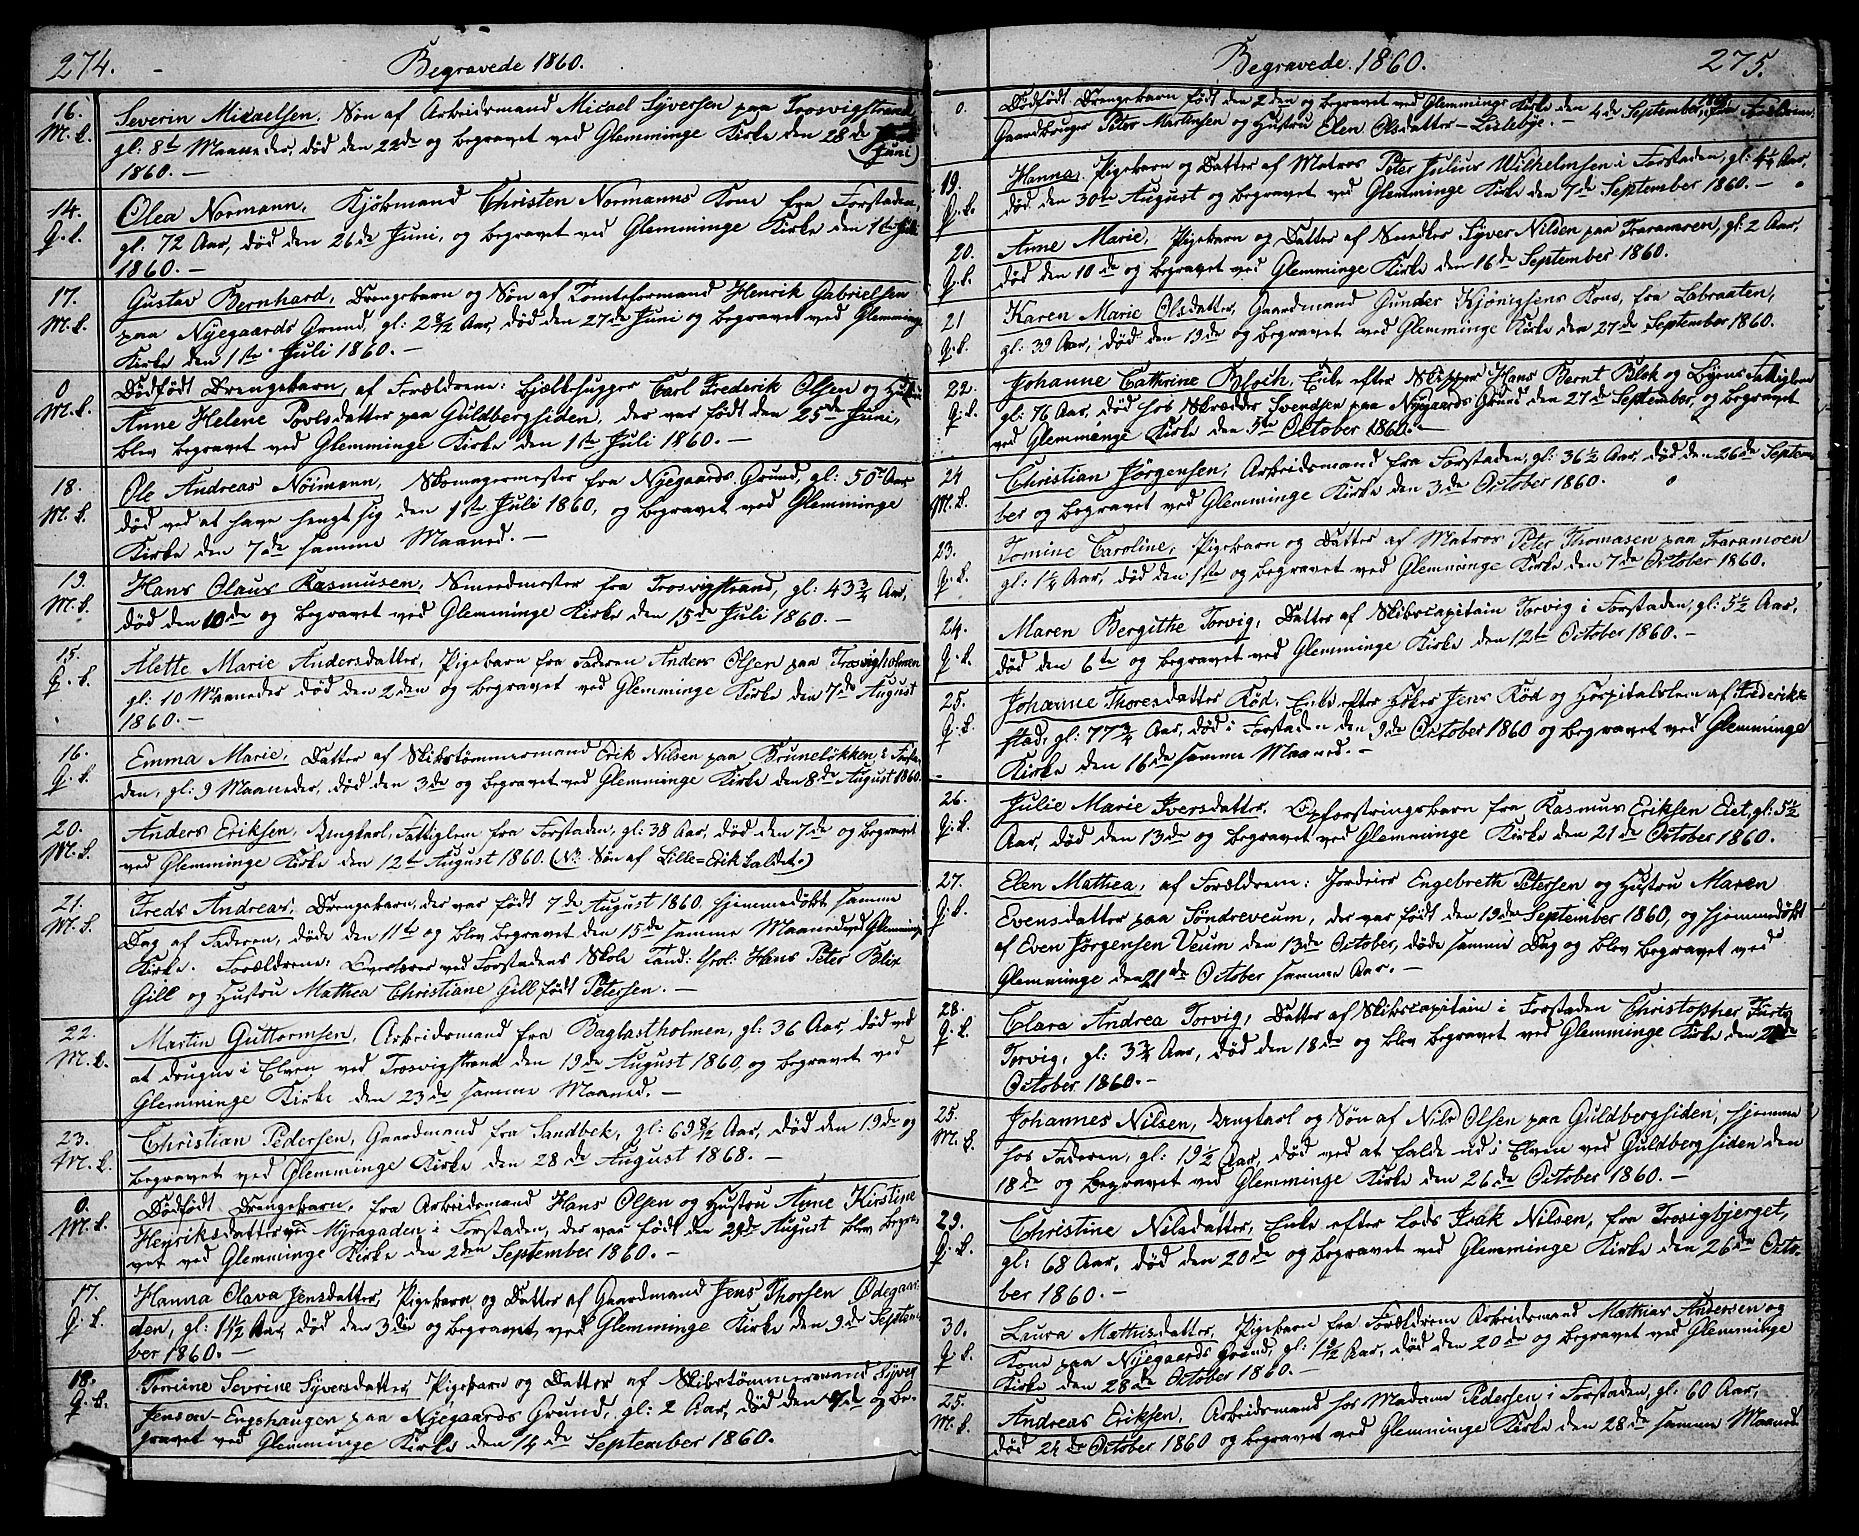 274.
Begravede 1860.
16. M. L. Severin Micaelsen, Søn af Arbeidsmand Micael Syversen paa Trosvigstrand,
gl. 8t Maaneder, død den 22de og begravet ved Glemminge Kirke den 28de
(Juni)
1860.—
14. Q. L. Olea Normann, Kjøbmand Christen Normanns Kone fra Forstaden,
gl. 72 Aar, død den 26de Juni, og begravet ved Glemminge Kirke den 1ste Juli
1860.—
17. M. L. Gustav Bernhard, Drengebarn og Søn af Tomteformand Henrik Gabrielsen
paa Nyegaards Grund, gl: 2 8/12 Aar, død den 27de Juni og begravet ved Glemminge
Kirke den 1ste Juli 1860.—
0 M. L. Dødfødt Drengebarn, af Forældrene: Carl Frederik Olsen og Hustru
Anne Helene Povlsdatter paa Guldbergsiden, der var født den 25de Juni,
blev begravet ved Glemminge Kirke den 1ste Juli 1860.—
18. M. L. Ole Andreas Noimann, Skomagermester fra Nyegaards Grund, gl: 50 Aar
død ved at have hengt sig den 1ste Juli 1860, og begravet ved Glemminge
Kirke den 7de samme Maaned.—
19. M. L. Hans Olaus Rasmusen, Smedmester fra Trosvigstrand, gl: 43 3/4 Aar,
død den 10de og begravet ved Glemminge Kirke den 15de Juli 1860.—
15. Q. L. Alette Marie Andersdatter, Pigebarn fra Faderen Anders Olsen paa Trosvigholmen
gl: 10 Maaneder død den 2den og begravet ved Glemminge Kirke den 7de August
1860.—
16. Q. L. Emma Marie, Datter af Skibstømmermand Erik Nilsen paa Bruneløkken i Forsta-
den, gl: 9 Maaneder, død den 3de og begravet ved Glemminge Kirke den 8de August 1860.
20. M. L. Anders Eriksen, Ungkarl, Fattiglem fra Forstaden, gl: 38 Aar, død den 7de og begravet
ved Glemminge Kirke den 12te August 1860. (Søn af Lille-Erik kaldet.)
21. M. L. Freds Andreas, Drengebarn, der var født 7de August 1860, hjemmedøbt samme
Dag af Faderen, døde den 11te og blev begravet den 15de samme Maaned ved Glemminge
Kirke. Forældrene: ved Forstadens Skole Cand: Hans Peter Blix
Gill og Hustru Mathea Christiane Gill født Petersen.—
22. M. L. Martin Guttormsen, Arbeidsmand fra Bagtastholmen, gl: 36 Aar, død ved
at drugne i Elven ved Trosvigstrand den 19de August 1860, og begravet ved
Glemminge Kirke den 23de samme Maaned.—
23. M. L. Christian Pedersen, Gaardmand fra Sandbek, gl: 69 8/12 Aar, død den 19de og
begravet ved Glemminge Kirke den 28de August 1868.—
0. M. L. Dødfødt Drengebarn, fra Arbeidsmand Hans Olsen og Hustru Anne Kirstine
Henriksdatter ved Myragaden i Forstaden, der var født den 29de August blev begra-
vet ved Glemminge Kirke den 2den September 1860.—
17. Q. L. Hanna Olava Jensdatter, Pigebarn og Datter af Gaardmand Jens Thorsen Ødegaar-
den, gl: 1 1/2 Aar, død den 3die og begravet ved Glemminge Kirke den 9de Septem-
ber 1860.—
18. Q. L. Torine Sevrine Syversdatter, Pigebarn og Datter af Skibstømmermand Syver
Jenson-Engshaugen paa Nyegaards Grund, gl: 2 Aar, død den 9de og be-
gravet ved Glemminge Kirke den 14de September 1860.
Begravede 1860.
275.
0. Dødfødt Drengebarn født den 2den og begravet ved Glemminge Kirke den 4de September 1860, fra Forældrene,
Gaardbruger Peter Martensen og Hustru Elen Olsdatter-Lislebye.—
19. Q. L. Hanna, Pigebarn og Datter af Matros Peter Julius Wilhelmsen i Forstaden, gl: 4 1/4 Aar,
død den 30te August og begravet ved Glemminge Kirke den 7de September 1860.—
20. Q. L. Anne Marie, Pigebarn og Datter af Snedker Syver Nilsen paa Traramoen, gl: 2 Aar,
død den 10de og begravet ved Glemminge Kirke den 16de September 1860.
21 Q. L. Karen Marie Olsdatter, Gaardmand Gunder Kjønigsens Kone, fra Labraaten,
gl: 39 Aar, død den 19de og begravet ved Glemminge Kirke den 27de September 1860.
22. Q. L. Johanne Cathrine Bloch, Enke efter Skipper Hans Bernt Blok og Byens Fattiglem
gl: 76 Aar, død hos Skrædder Svendsen paa Nyegaards Grund den 27de September og begravet
ved Glemminge Kirke den 5te October 1860.—
24 M. L. Christian Jørgensen, Arbeidsmand fra Forstaden, gl: 36 1/2 Aar, død den 26de Septem-
ber og begravet ved Glemminge Kirke den 3de October 1860.
23. Q. L. Tomine Caroline, Pigebarn og Datter af Matros Peter Thomasen paa Traramoen
gl: 1 1/4 Aar, død den 1ste og begravet ved Glemminge Kirke den 7de October 1860.
24. Q. L. Maren Bergithe Torvig, Datter af Skibscapitain Torvig i Forstaden, gl: 5 1/2 Aar,
død den 6te og begravet ved Glemminge Kirke den 12te October 1860.—
25. Q. L. Johanne Thoresdatter Kød, Enke efter Høker Jens Kød og Hospitalslem af Frederik-
stad, gl: 77 3/4 Aar, død i Forstaden den 9de October 1860 og begravet ved Glemminge
Kirke den 16de samme Maaned.—
26. Q. L. Julie Marie Iversdatter, Opfostringsbarn fra Rasmus Eriksen Eiet, gl: 5 1/2
Aar, død den 13de og begravet ved Glemminge Kirke den 21de October 1860.
27. Q. L. Elen Mathea, af Forældrene: Jordeier Engebreth Petersen og Hustru Maren
Evensdatter paa Søndreveum, der var født den 19de September 1860, og hjemmedøbt
af Even Jørgensen Veum den 13de October, døde samme Dag og blev begravet ved
Glemminge den 21de October samme Aar.—
28. Q. L. Clara Andrea Torvig, Datter af Skibscapitain i Forstaden Christopher
Torvig, gl: 3 3/4 Aar, død den 18de og blev begravet ved Glemminge Kirke den
October 1860.—
25. M. L. Johannes Nilsen, Ungkarl og Søn af Nils Olsen paa Guldbergsiden, hjemme
hos Faderen, gl: 19 1/2 Aar, død ved at falde ud i Elven ved Guldbergsiden den
18de og begravet ved Glemminge Kirke den 26de October 1860.—
29. Q. L. Christine Nilsdatter, Enke efter Lods Isak Nilsen, fra Trosvigbjerget,
gl: 68 Aar, død den 20de og begravet ved Glemminge Kirke den 26de Octo-
ber 1860.—
30. Q. L. Laura Mathisdatter, Pigebarn fra Forældrene Arbeidsmand Mathias Andersen og
Kone paa Nyegaards Grund, gl: Aar, død den 20de og begravet ved Glemminge
Kirke den 28de October 1860.
25. M. L. Andreas Eriksen, Arbeidsmand hos Madame Pedersen i Forstaden, gl: 60 Aar,
død 24de October 1860 og begravet ved Glemminge Kirke den 28de samme Maaned.